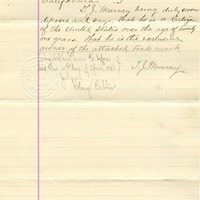 California
T. J. Murray being duly sworn
deposes and says, that he is a Citizen
of the United States over the age of twenty
one years. That he is the exclusive
owner of the attached trade mark
Subscribed and sworn to before
me this day of April 188
T. J. Murray